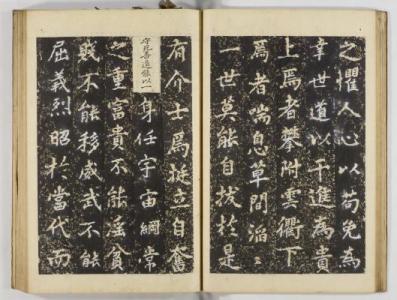 之懼人心以苟免為
幸世道以干進為貴
上焉者攀附雲衢下
焉者喘息草間滔〻
一世莫能自拔於是
有介士焉挺立自奮
守死善道能以一
身任宇宙綱常
之重富貴不能淫貧
賤不能移威武不能
屈義烈昭於當代而